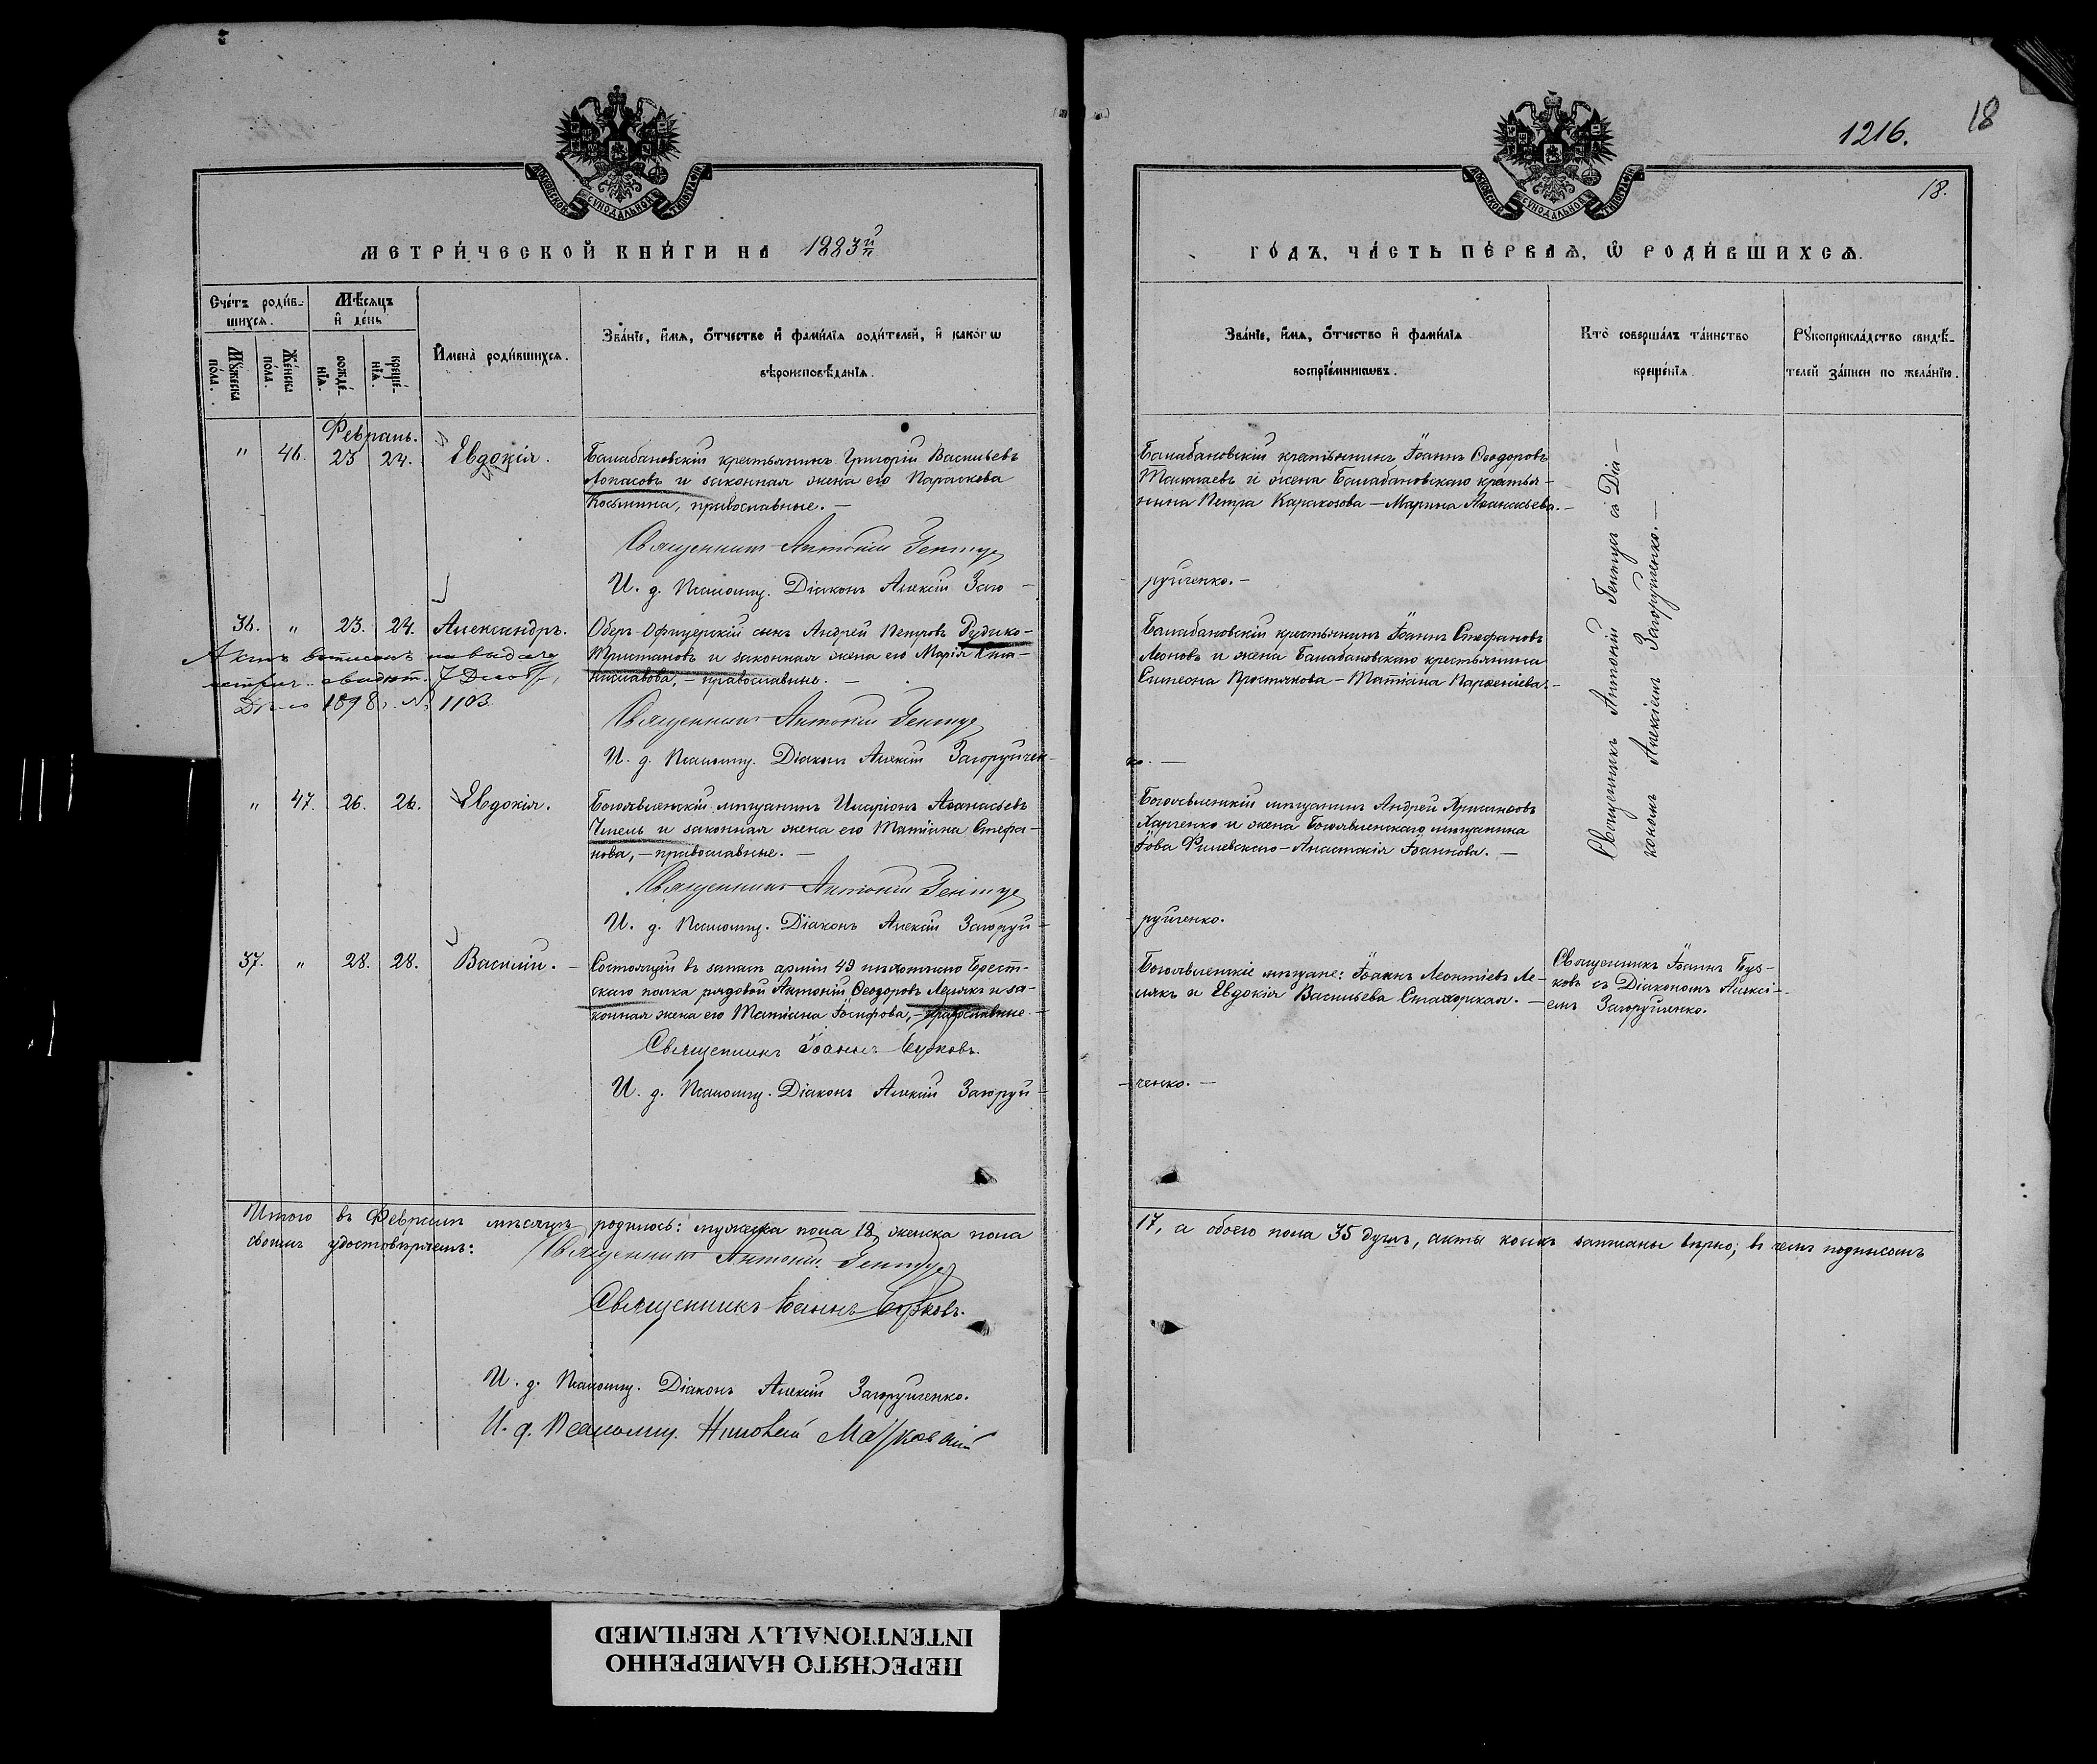 1216.
18
18.
МОСКОВСКОЙ СѴНОДАЛЬНОЙ ТИПОГРАФІИ
МОСКОВСКОЙ СѴНОДАЛЬНОЙ ТИПОГРАФІИ
МЕТРИ́ЧЕСКОЙ КНИ́ГИ НА 1883й
ГО́ДЪ, ЧА́СТЬ ПЕ́РВАЯ, Ѡ РОДИ́ВШИХСЯ.
Сче́тъ роди́в-
шихся.
Мѣ́сяцъ
и де́нь
Мꙋжеска
пола.
Же́нска
по́ла.
рожде́-
нїя.
креще́-
нїя.
Имена̀ роди́вшихся.
Зва́нїе, и́мя, о́тчество и фами́лїя роди́телей, и како́гѡ
вѣроисповѣ́данїя.
Зва́нїе, и́мя, о́тчество и фами́лїя
воспрїе́мникѡвъ.
Кто̀ соверша́лъ та́инство
креще́нїя.
Рꙋкоприкла́дство свидѣ́-
телей за́писи по жела́нїю.
Февраль.
" 46. 23 24. Евдокія.
Балабановскій крестьянинъ Григорій Васильевъ
Лопасовъ и законная жена его Параскева
Косьмина, православные. —
Священникъ Антоній Гентуе
И. д. Псаломщ. Діаконъ Алексій Заго-
руйченко. —
Балабановскій крестьянинъ Іоаннъ Ѳеодоровъ
Токмаевъ и жена Балабановскаго крестья-
нина Петра Каракозова — Марина Аѳанасьева. —
Священникъ Антоній Гентуе съ Діа-
кономъ Алексіемъ Загоруйченко. —
36. " 23. 24. Александръ.
Оберъ-Офицерскій сынъ Андрей Петровъ Рудико-
Тристановъ и законная жена его Марія Ста-
ниславова, — православные. —
Священникъ Антоній Гентуе
И. д. Псаломщ. Діаконъ Алексій Загоруйчен-
ко. —
Балабановскій крестьянинъ Іоаннъ Стефановъ
Леоновъ и жена Балабановскаго крестьянина
Симеона Простякова — Татіана Парѳеніева. —
1898 г. № 1103.
" 47. 26. 26. Евдокія.
Богоявленскій мѣщанинъ Иларіонъ Аѳанасьевъ
Чмель и законная жена его Татіана Стефа-
нова, — православные. —
Священникъ Антоній Гентуе
И. д. Псаломщ. Діаконъ Алексій Загоруй-
руйченко.
Богоявленскій мѣщанинъ Андрей
Харченко и жена Богоявленскаго мѣщанина
Іова Филевскаго — Анастасія Іоаннова. —
37. " 28. 28. Василій. —
Состоящій въ запасѣ арміи 49 пѣхотнаго Брест-
скаго полка рядовой Антоній Ѳеодоровъ Лелякъ и за-
конная жена его Татіана Іосифова, — православные —
Священникъ Іоаннъ Бузковъ.
И. д. Псаломщ. Діаконъ Алексій Загоруй-
ченко. —
Богоявленскіе мѣщане: Іоаннъ Леонтіевъ Ле-
лякъ и Евдокія Васильева Стахорская. —
Священникъ Іоаннъ Буз-
ковъ съ Діакономъ Алексі-
емъ Загоруйченко.
Итого въ Февралѣ мѣсяцѣ родилось: мужеска пола 18, женска пола
17, а обоего пола 35 душъ, акты коихъ записаны вѣрно; въ чемъ подписомъ
своимъ удостовѣряемъ:
Священникъ Антоній Гентуе
Священникъ Іоаннъ Бузковъ.
И. д. Псаломщ. Діаконъ Алексій Загоруйченко.
И. д. Псаломщ.
ПЕРЕСНЯТО НАМЕРЕННО
INTENTIONALLY REFILMED